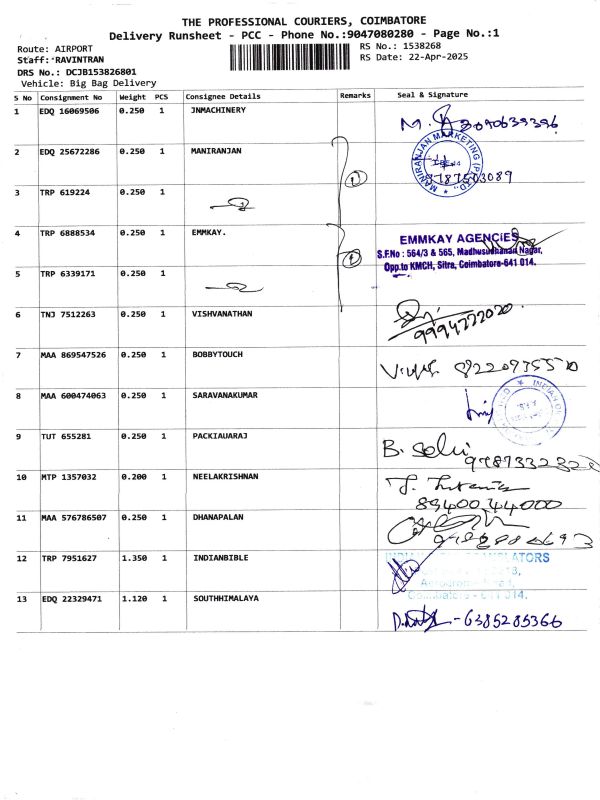 THE PROFESSIONAL COURIERS, COIMBATORE
Delivery Runsheet - PCC - Phone No.:9047080280 - Page No.:1
Route: AIRPORT
RS No.: 1538268
Staff: RAVINTRAN
RS Date: 22-Apr-2025
DRS No.: DCJB153826801
Vehicle: Big Bag Delivery
S No Consignment No Weight PCS Consignee Details Remarks Seal & Signature
1 EDQ 16069506 0.250 1 JNMACHINERY
2 EDQ 25672286 0.250 1 MANIRANJAN
MANIRANJAN MARKETING (P) LTD.,
9787503089
3 TRP 619224 0.250 1
4 TRP 6888534 0.250 1 EMMKAY.
EMMKAY AGENCIES
S.F.No : 564/3 & 565, Madhusudhanan Nagar,
Opp.to KMCH, Sitra, Coimbatore-641 014.
5 TRP 6339171 0.250 1
6 TNJ 7512263 0.250 1 VISHVANATHAN
9994222020
7 MAA 869547526 0.250 1 BOBBYTOUCH
8 MAA 600474063 0.250 1 SARAVANAKUMAR
9 TUT 655281 0.250 1 PACKIAUARAJ
B. Selvi
10 MTP 1357032 0.200 1 NEELAKRISHNAN
8940044000
11 MAA 576786507 0.250 1 DHANAPALAN
12 TRP 7951627 1.350 1 INDIANBIBLE
Coimbatore - 641 014.
13 EDQ 22329471 1.120 1 SOUTHHIMALAYA
-6385285366